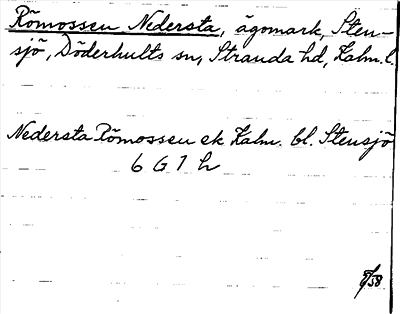 Römossen Nedersta, ägomark, Sten-
sjö, Döderhults sn, Stranda hd, Kalm. l.
Nedersta Römossen ek Kalm. bl. Stensjö
6 G 1 h